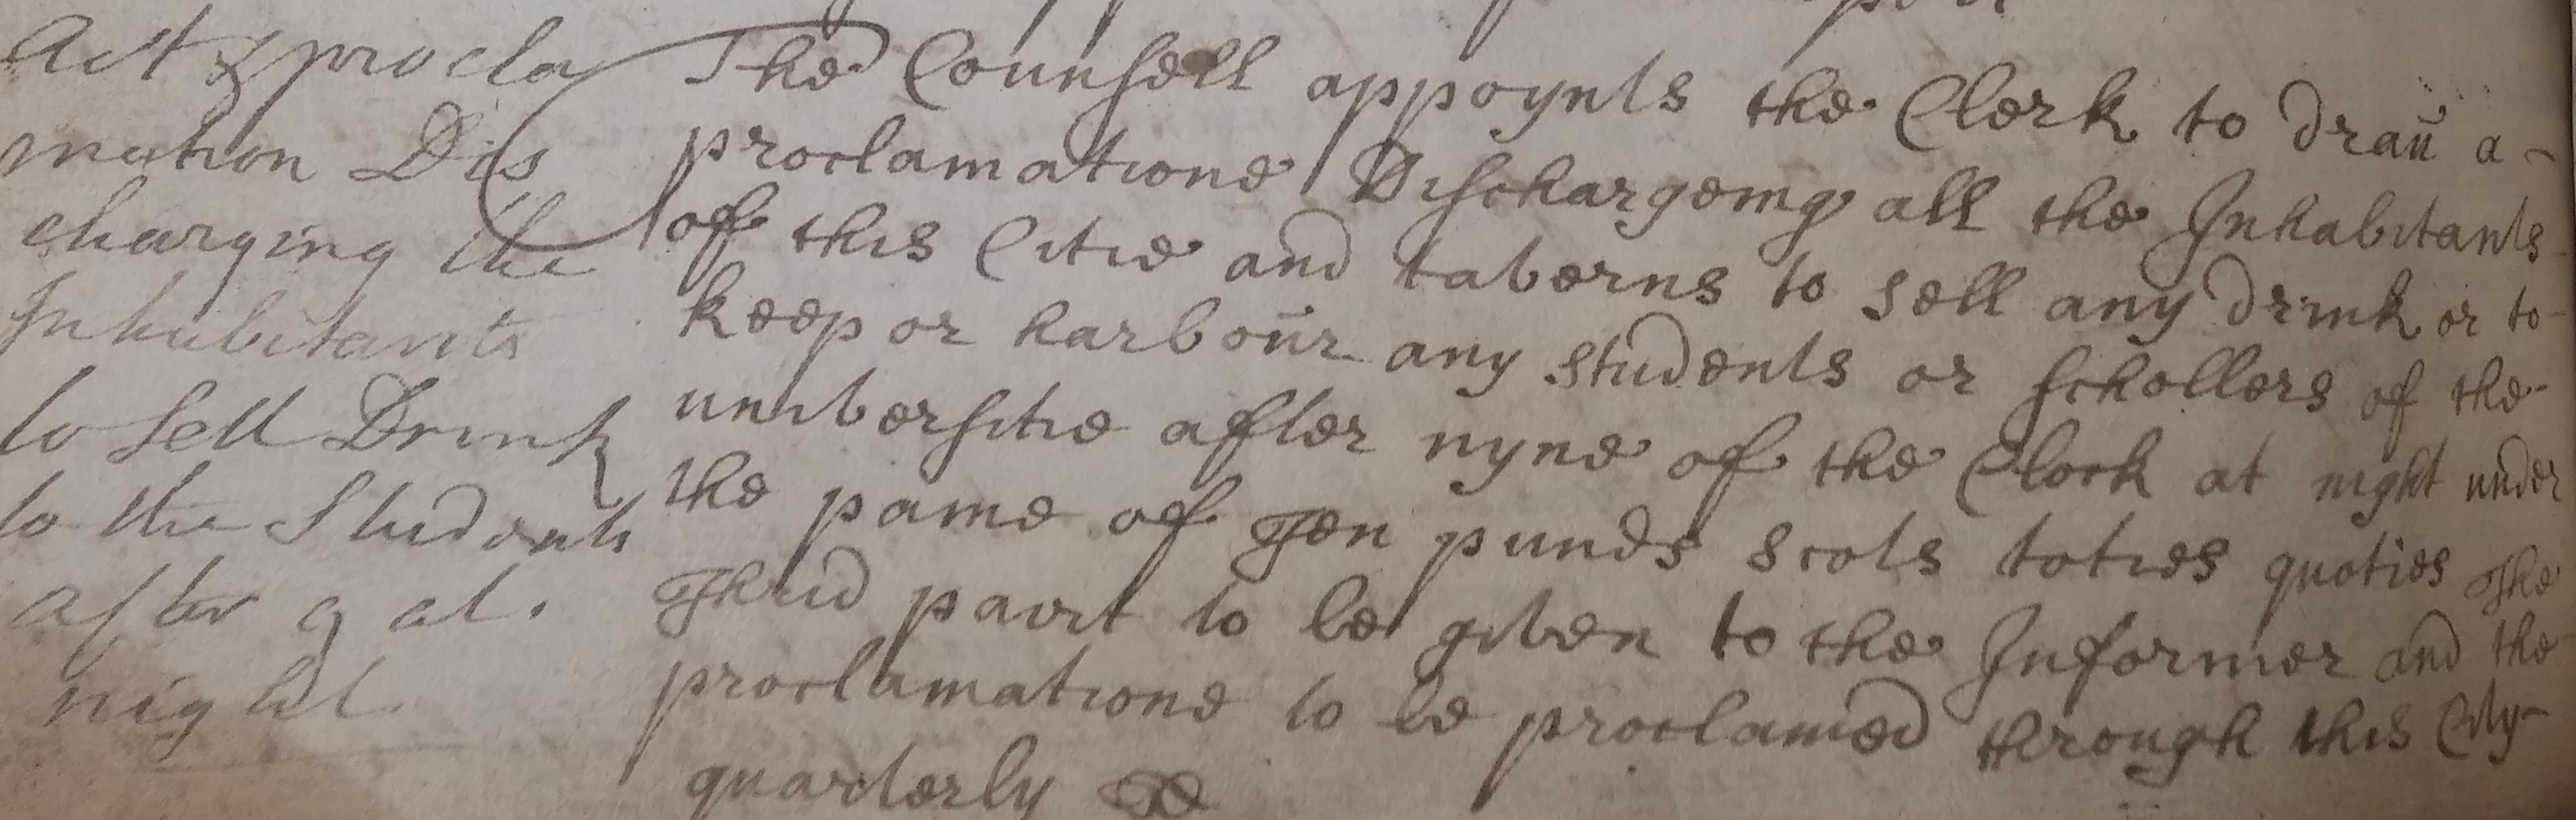 Act & procla
mation Dis
charging the
Inhabitants
to sell Drink
to the Students
after 9 at
night
The Counsell appoynts the Clerk to draw a
proclamatione Dischargeing all the Inhabitants
of this Citie and taverns to sell any drink or to
keep or harbour any students or schollers of the
universitie after nyne of the Clock at night under
the paine of Ten punds scots toties quoties The
Thrid pairt to be given to the Informer and the
proclamatione to be proclamed through this City
quarterly